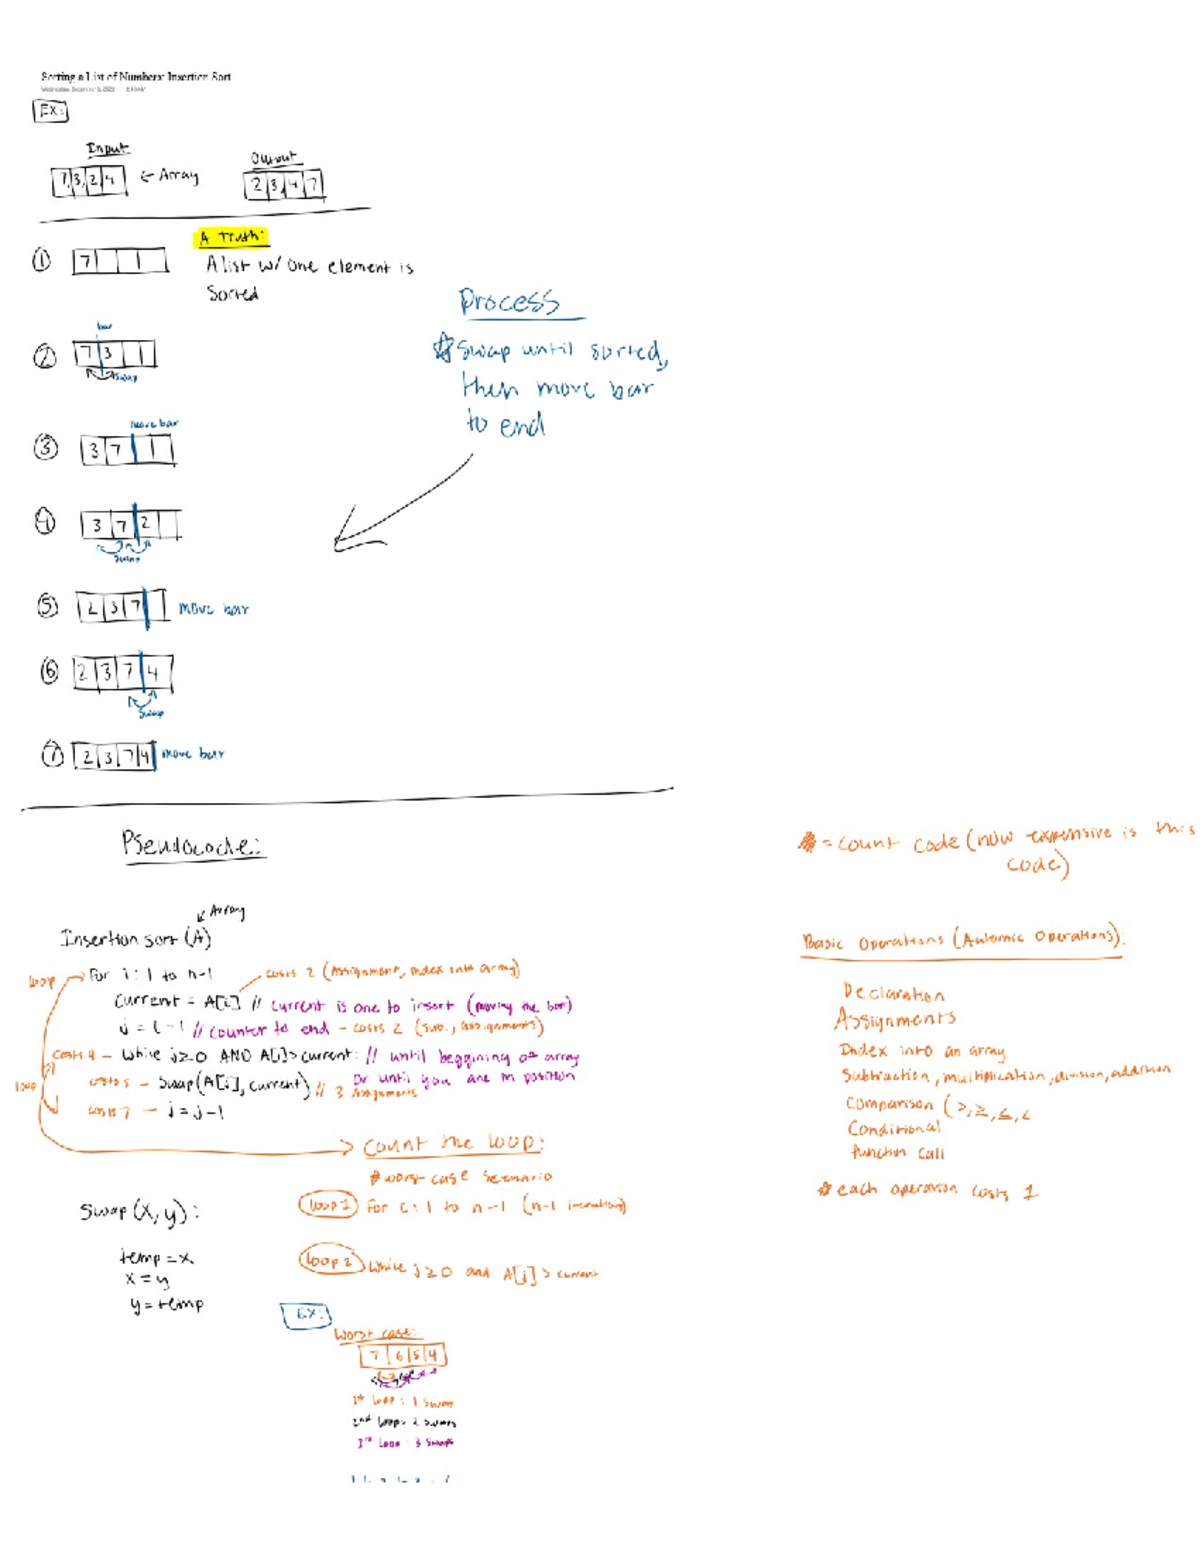 Sorting a List of Numbers: Insertion Sort
EX:
Input
7,3,2,4 ← Array
Output
2 3 4 7
A Truth:
A list w/ one element is
Sorted
① 7
Process
☆ Swap until sorted,
then move bar
to end
bar
② 7 3
swap
move bar
③ 3 7
④ 3 7 2
Swaps
⑤ 2 3 7 move bar
⑥ 2 3 7 4
Swap
⑦ 2 3 7 4 move bar
Pseudocode:
= count code (how expensive is this
code)
Array
Insertion sort (A)
loop
For i: 1 to n-1
costs 2 (Assignment, index into array)
Current = A[i] // current is one to insert (moving the bar)
j = i - 1 // counter to end - costs 2 (sub., assignments)
costs 4 - While j≥0 AND A[j]>current: // until beggining of array
or until you are in position
loop
costs 5 - Swap(A[j], current) // 3 Assignments
costs 7 - j = j-1
Basic Operations (Automic Operations):
Declaration
Assignments
Index into an array
Subtraction, multiplication, division, addition
Comparison (>,≥,≤,<
Conditional
function call
each operation costs 1
Count the loop:
worst case scenario
loop 1 For i: 1 to n-1 (n-1 iterations)
loop 2 While j≥0 and A[j]>current
Swap (x, y):
temp = x
x = y
y = temp
EX:
Worst case:
7 6 5 4
1st loop: 1 Swap
2nd loop: 2 swaps
3rd Loop: 3 Swaps